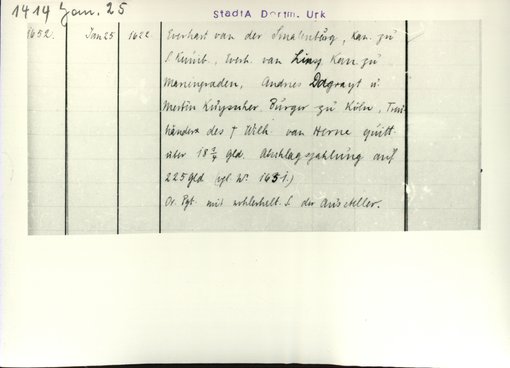 1414 Jan. 25
StadtA Dortm. Urk
1652. Jan 25 1622
Everhart van der Smalenburg, Kan. zu
S. Kunib., Everh. van Linsz Kan. zu
Mariengraden, Andries Dagrayt u.
Mertin Kruyscher, Bürger zu Köln, Treu-
händer des † Wilh. van Herne quitt.
über 18 3/4 Gld. Abschlagszahlung auf
225 Gld (vgl. Nr. 1651.)
Or. Pgt. mit wohlerhalt. S. der Aussteller.